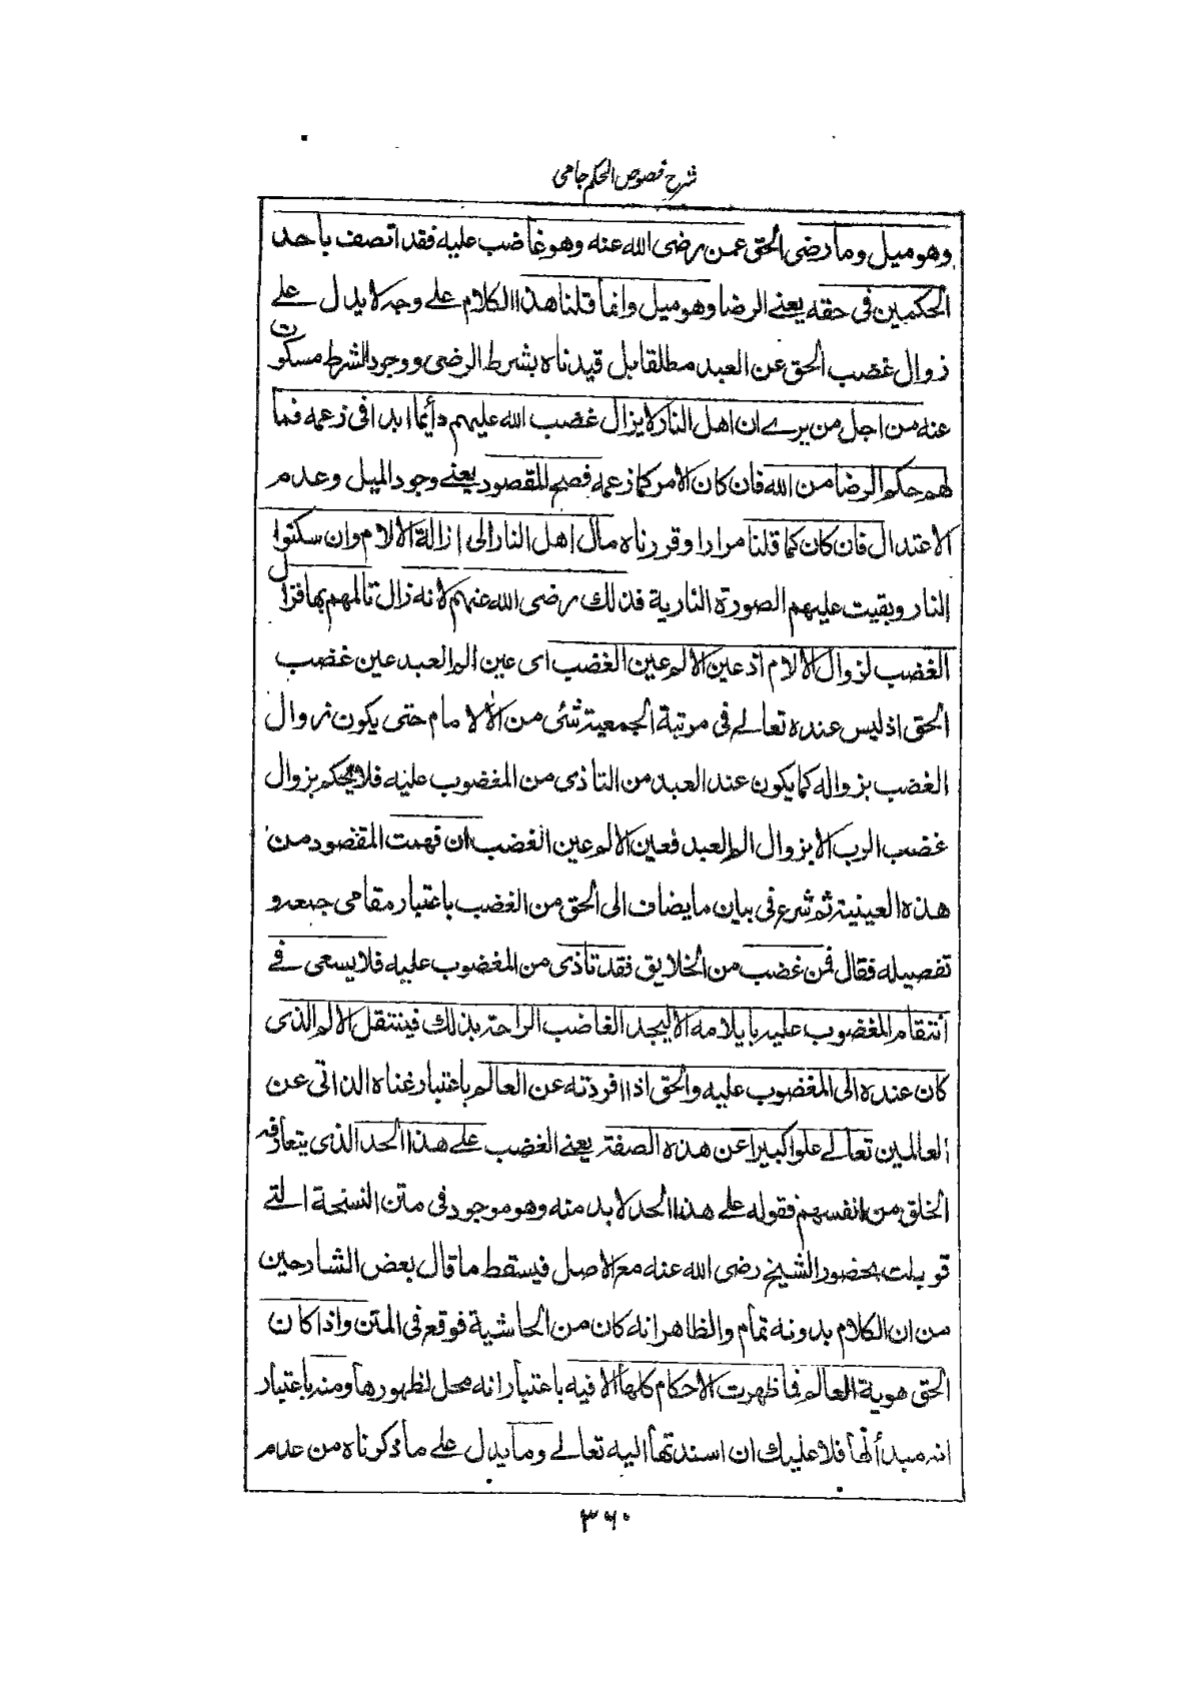 شرح فصوص الحکم جامی
وهو ميل وما رضى الحق عمن رضى الله عنه وهو غاضب عليه فقد اتصف باحد
الحكمين فى حقه يعنے الرضا وهو ميل وانما قلنا هذا الكلام علے وجه لا يدل علے
زوال غضب الحق عن العبد مطلقا بل قيدناه بشرط الرضى ووجود الشرط مسكوت
عنه من اجل من يرے ان اهل النار لا يزال غضب الله عليهم دائما ابدا فى زعمه فما
لهم حكم الرضا من الله فان كان الامر كما زعمه فصح المقصود يعنے وجود الميل وعدم
الاعتدال فان كان كما قلنا مرارا وقررناه مآل اهل النار الى ازالة الالام وان سكنوا
النار وبقيت عليهم الصورة النارية فذلك رضى الله عنهم لانه زال تالمهم بها فزال
الغضب لزوال الالام اذ عين الالم عين الغضب اى عين الم العبد عين غضب
الحق اذ ليس عنده تعالے فى مرتبة الجمعية شئ من الالام حتى يكون زوال
الغضب بزواله كما يكون عند العبد من التاذى من المغضوب عليه فلا يحكم بزوال
غضب الرب الا بزوال الم العبد فعين الالم عين الغضب ان فهمت المقصود من
هذه العينية ثم شرع فى بيان ما يضاف الى الحق من الغضب باعتبار مقامى جمعه و
تفصيله فقال فمن غضب من الخلايق فقد تاذى من المغضوب عليه فلا يسعى فے
انتقام المغضوب عليه بايلامه الا ليجد الغاضب الراحة بذلك فينتقل الالم الذى
كان عنده الى المغضوب عليه والحق اذا افردته عن العالم باعتبار غناه الذاتى عن
العالمين تعالے علوا كبيرا عن هذه الصفة يعنے الغضب علے هذا الحد الذى يتعارفه
الخلق من انفسهم فقوله علے هذا الحد لا بد منه وهو موجود فى متن النسخة التے
قوبلت بحضور الشيخ رضى الله عنه مع الاصل فيسقط ما قال بعض الشارحين
من ان الكلام بدونه تمام والظاهر انه كان من الحاشية فوقع فى المتن واذا كان
الحق هوية العالم فما ظهرت الاحكام كلها الا فيه باعتبار انه محل لظهورها ومنه باعتبار
انه مبدأ لها فلا عليك ان اسندتها اليه تعالے وما يدل علے ما ذكرناه من عدم
۳۶۰